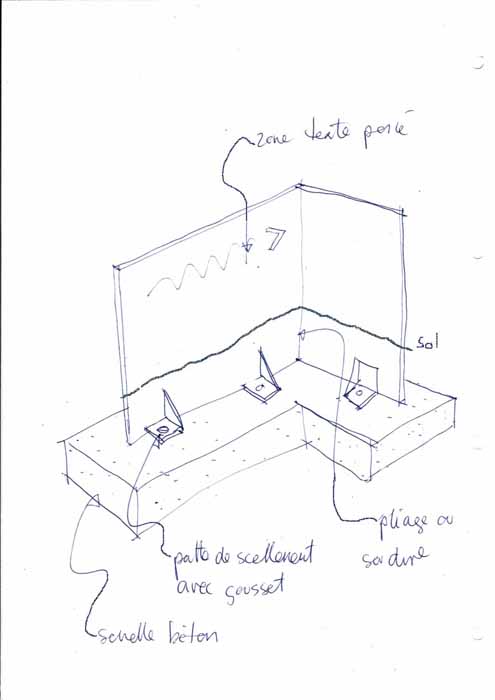 zone texte percé
sol
pliage ou
soudure
patte de scellement
avec gousset
semelle béton